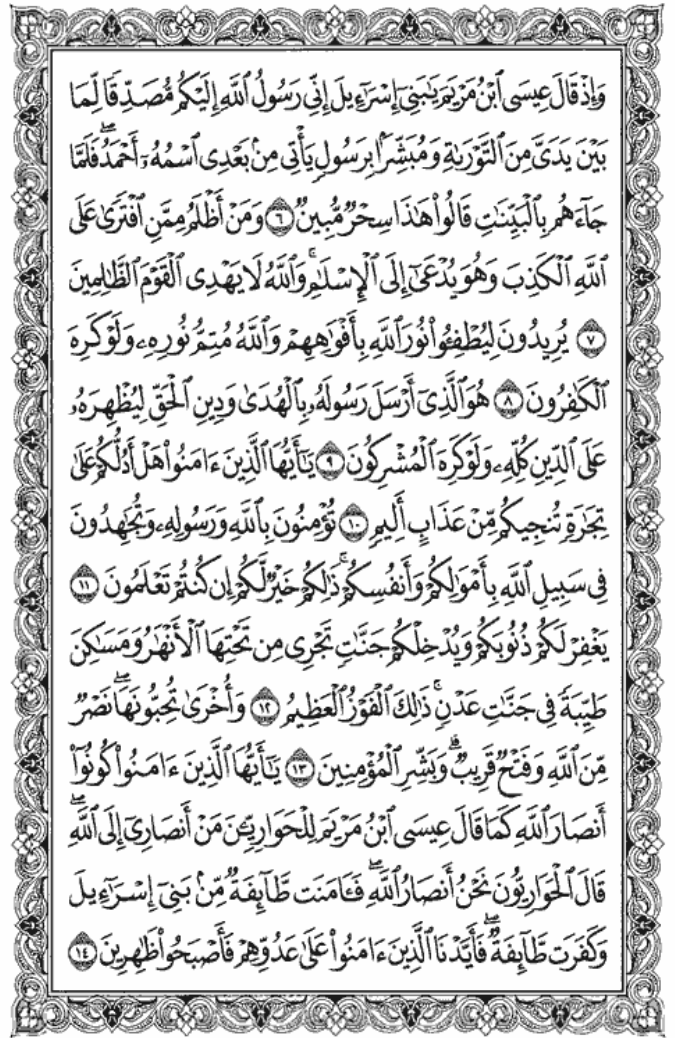 وَإِذْ قَالَ عِيسَى ٱبْنُ مَرْيَمَ يَٰبَنِىٓ إِسْرَٰٓءِيلَ إِنِّى رَسُولُ ٱللَّهِ إِلَيْكُم مُّصَدِّقًا لِّمَا
بَيْنَ يَدَىَّ مِنَ ٱلتَّوْرَىٰةِ وَمُبَشِّرًۢا بِرَسُولٍ يَأْتِى مِنۢ بَعْدِى ٱسْمُهُۥٓ أَحْمَدُ ۖ فَلَمَّا
جَآءَهُم بِٱلْبَيِّنَٰتِ قَالُوا۟ هَٰذَا سِحْرٌ مُّبِينٌ ٦ وَمَنْ أَظْلَمُ مِمَّنِ ٱفْتَرَىٰ عَلَى
ٱللَّهِ ٱلْكَذِبَ وَهُوَ يُدْعَىٰٓ إِلَى ٱلْإِسْلَٰمِ ۚ وَٱللَّهُ لَا يَهْدِى ٱلْقَوْمَ ٱلظَّٰلِمِينَ
٧ يُرِيدُونَ لِيُطْفِـُٔوا۟ نُورَ ٱللَّهِ بِأَفْوَٰهِهِمْ وَٱللَّهُ مُتِمُّ نُورِهِۦ وَلَوْ كَرِهَ
ٱلْكَٰفِرُونَ ٨ هُوَ ٱلَّذِىٓ أَرْسَلَ رَسُولَهُۥ بِٱلْهُدَىٰ وَدِينِ ٱلْحَقِّ لِيُظْهِرَهُۥ
عَلَى ٱلدِّينِ كُلِّهِۦ وَلَوْ كَرِهَ ٱلْمُشْرِكُونَ ٩ يَٰٓأَيُّهَا ٱلَّذِينَ ءَامَنُوا۟ هَلْ أَدُلُّكُمْ عَلَىٰ
تِجَٰرَةٍ تُنجِيكُم مِّنْ عَذَابٍ أَلِيمٍ ١٠ تُؤْمِنُونَ بِٱللَّهِ وَرَسُولِهِۦ وَتُجَٰهِدُونَ
فِى سَبِيلِ ٱللَّهِ بِأَمْوَٰلِكُمْ وَأَنفُسِكُمْ ۚ ذَٰلِكُمْ خَيْرٌ لَّكُمْ إِن كُنتُمْ تَعْلَمُونَ ١١
يَغْفِرْ لَكُمْ ذُنُوبَكُمْ وَيُدْخِلْكُمْ جَنَّٰتٍ تَجْرِى مِن تَحْتِهَا ٱلْأَنْهَٰرُ وَمَسَٰكِنَ
طَيِّبَةً فِى جَنَّٰتِ عَدْنٍ ۚ ذَٰلِكَ ٱلْفَوْزُ ٱلْعَظِيمُ ١٢ وَأُخْرَىٰ تُحِبُّونَهَا ۖ نَصْرٌ
مِّنَ ٱللَّهِ وَفَتْحٌ قَرِيبٌ ۗ وَبَشِّرِ ٱلْمُؤْمِنِينَ ١٣ يَٰٓأَيُّهَا ٱلَّذِينَ ءَامَنُوا۟ كُونُوٓا۟
أَنصَارَ ٱللَّهِ كَمَا قَالَ عِيسَى ٱبْنُ مَرْيَمَ لِلْحَوَارِيِّـۧنَ مَنْ أَنصَارِىٓ إِلَى ٱللَّهِ ۖ
قَالَ ٱلْحَوَارِيُّونَ نَحْنُ أَنصَارُ ٱللَّهِ ۖ فَـَٔامَنَت طَّآئِفَةٌ مِّنۢ بَنِىٓ إِسْرَٰٓءِيلَ
وَكَفَرَت طَّآئِفَةٌ ۖ فَأَيَّدْنَا ٱلَّذِينَ ءَامَنُوا۟ عَلَىٰ عَدُوِّهِمْ فَأَصْبَحُوا۟ ظَٰهِرِينَ ١٤